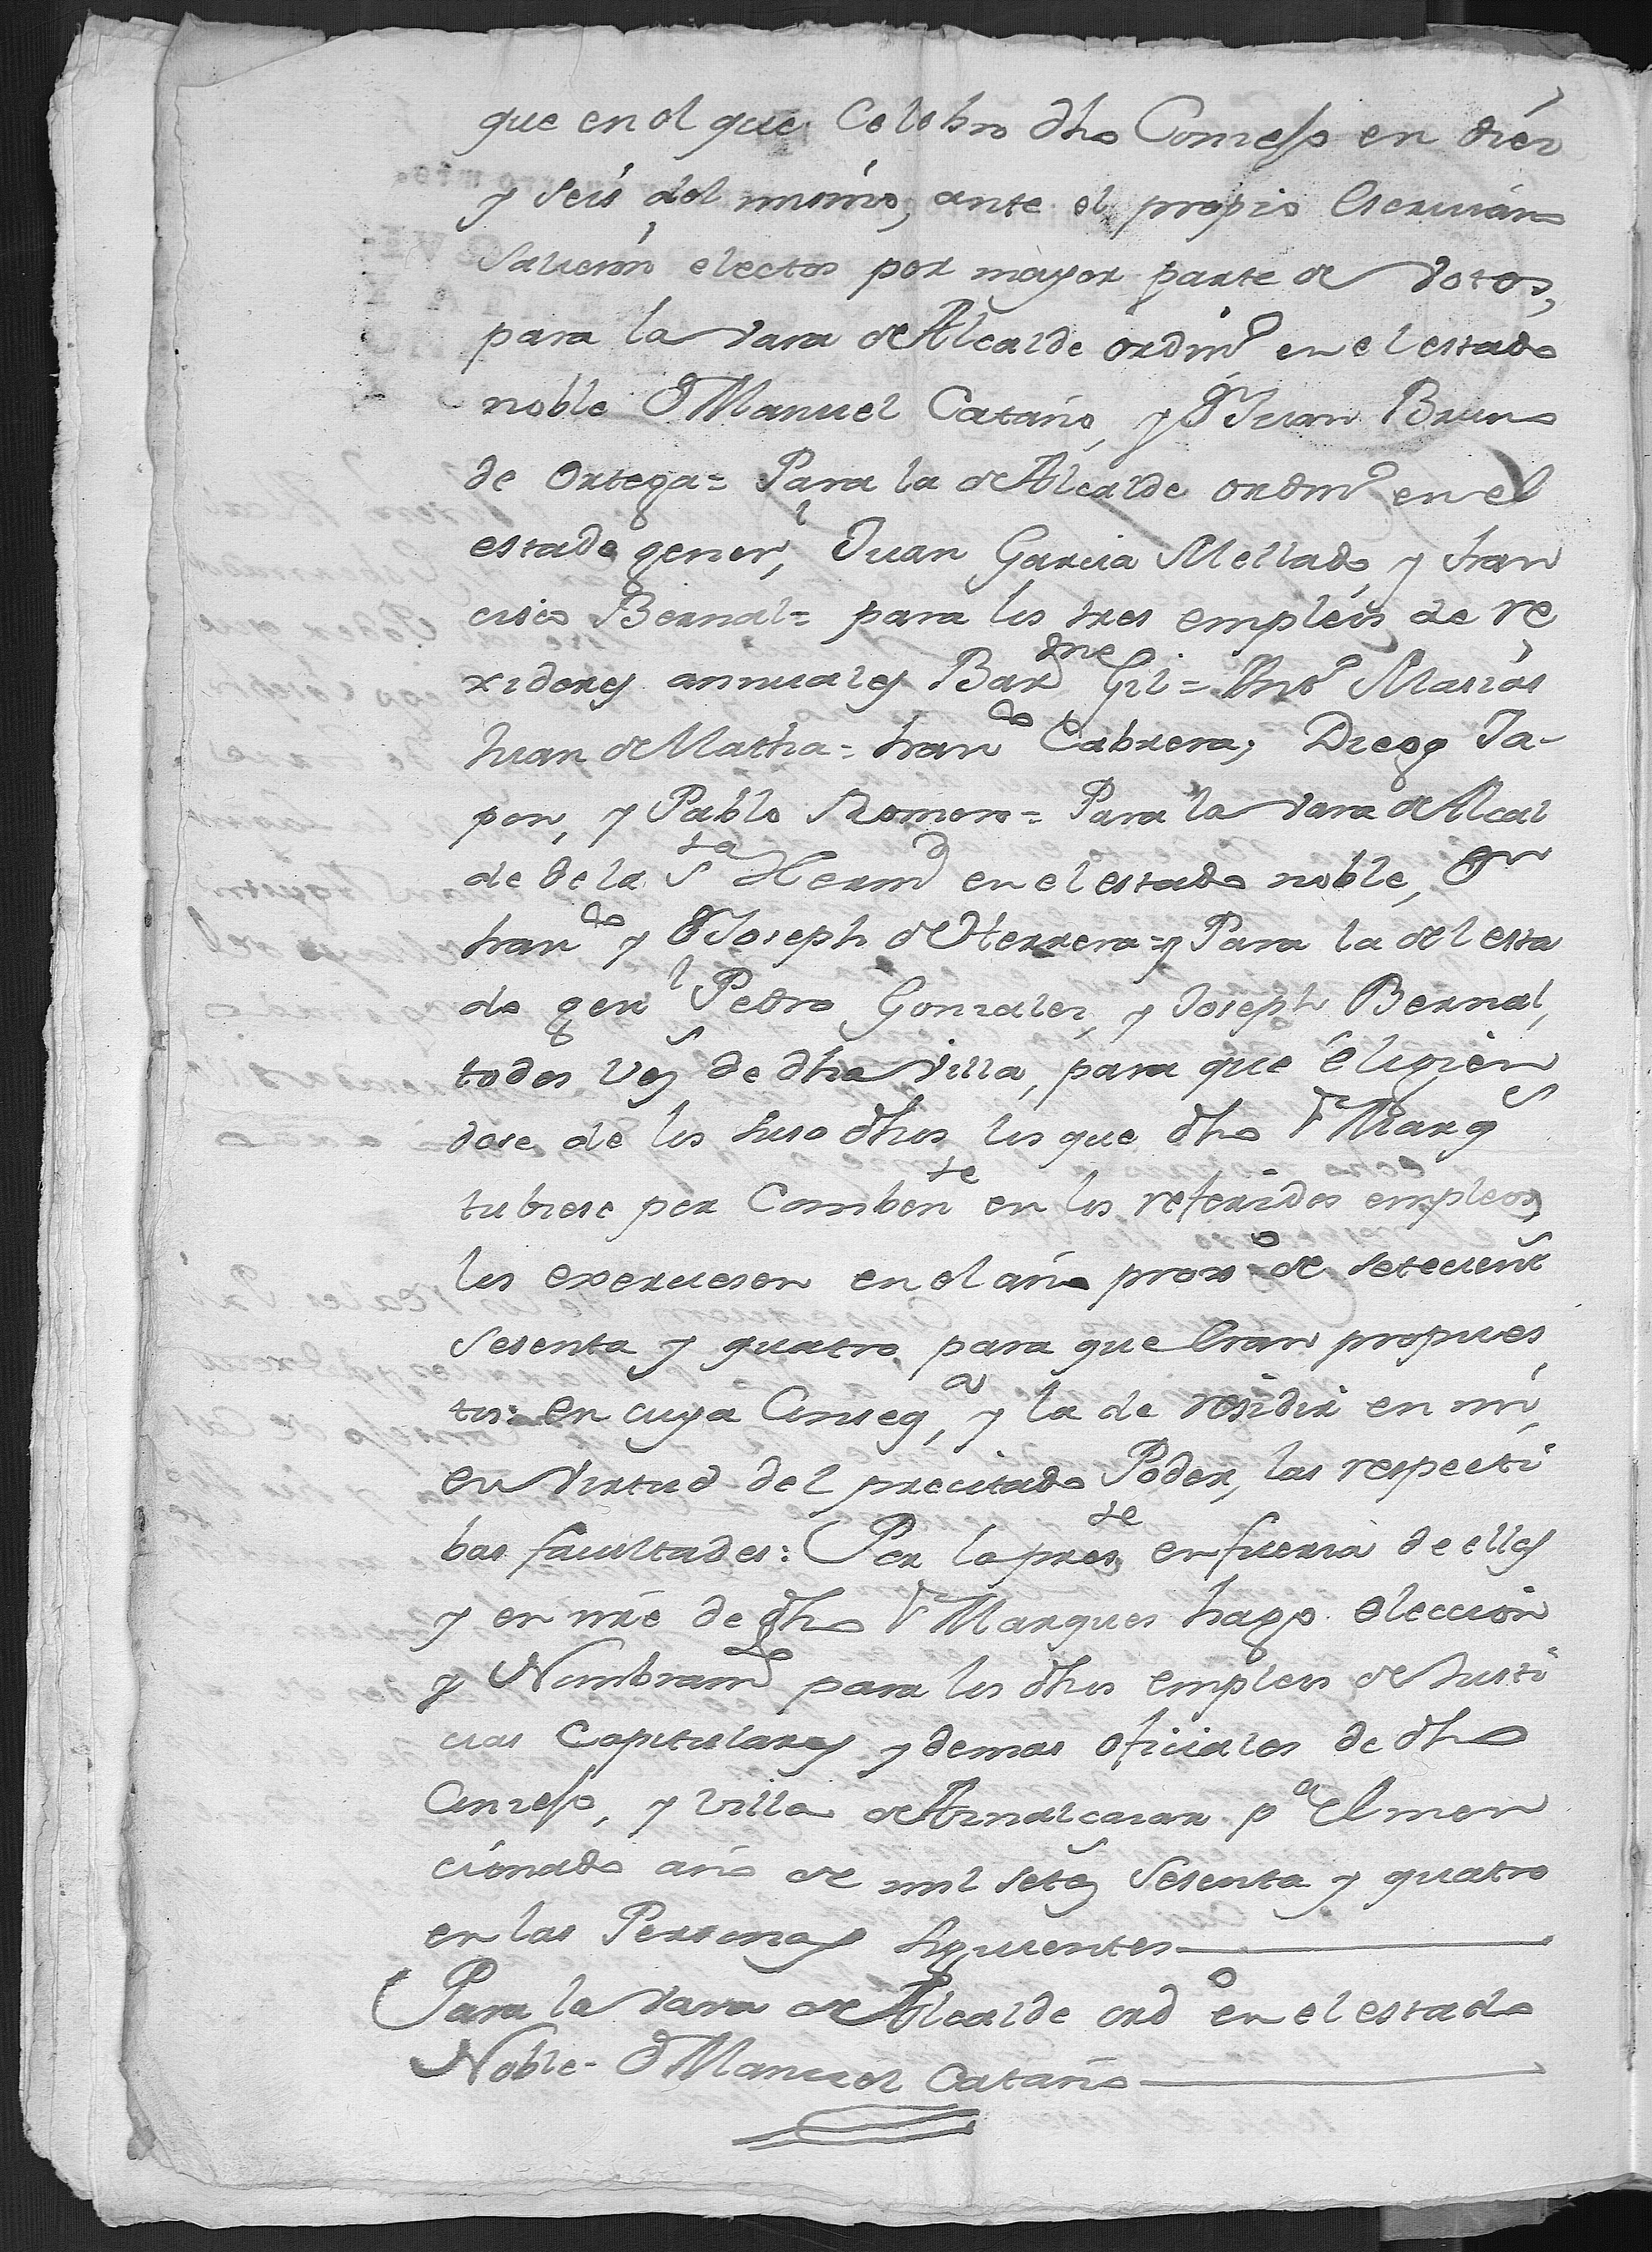 que en el que Celebro dho Consejo en diez
y seis del mismo, ante el propio Escriuano
Salieron electos por mayor parte de Votos,
para la Vara de Alcalde ordinº en el estado
noble Dn Manuel Cataño, y Dn Juan Bruno
de Ortega = Para la de Alcalde ordinº en el
estado generl, Juan Garcia Mellado y Fran
cisco Bernal = para los tres empleos de re
xidores annuales Barme Gil = Antº Macias
Juan de Matha = Franco Cabrera, Diego Ja-
pon, y Pablo Romero = Para la Vara de Alcal
de de la Sta Hermd en el estado noble, Dn
Franco y Dn Joseph de Herrera = y Para la del esta
do genl Pedro Gonzalez, y Joseph Bernal,
todos Vos de dha Villa, para que eligien
dose de los suso dhos los que dho Sr Marqs
tubiese por Combente en los referidos empleos,
los exerciesen en el año proxº de setecients
Sesenta y quatro, para que Eran propues
tos: en cuya Conseqa, y la de residir en mi,
en Virtud del precitado Poder, las respecti
bas facultades: Por la preste en fuerza de ellas
y en nre de dho Sr Marques hago eleccion
y Nombramto para los dhos empleos de Justi
cias Capitulares y demas oficiales de dho
Consejo, y Villa de Aznalcazar pa El men
cionado año de mil setes Sesenta y quatro
en las Personas siguientes
Para la Vara de Alcalde ordº en el estado
Noble - Dn Manuel Cataño